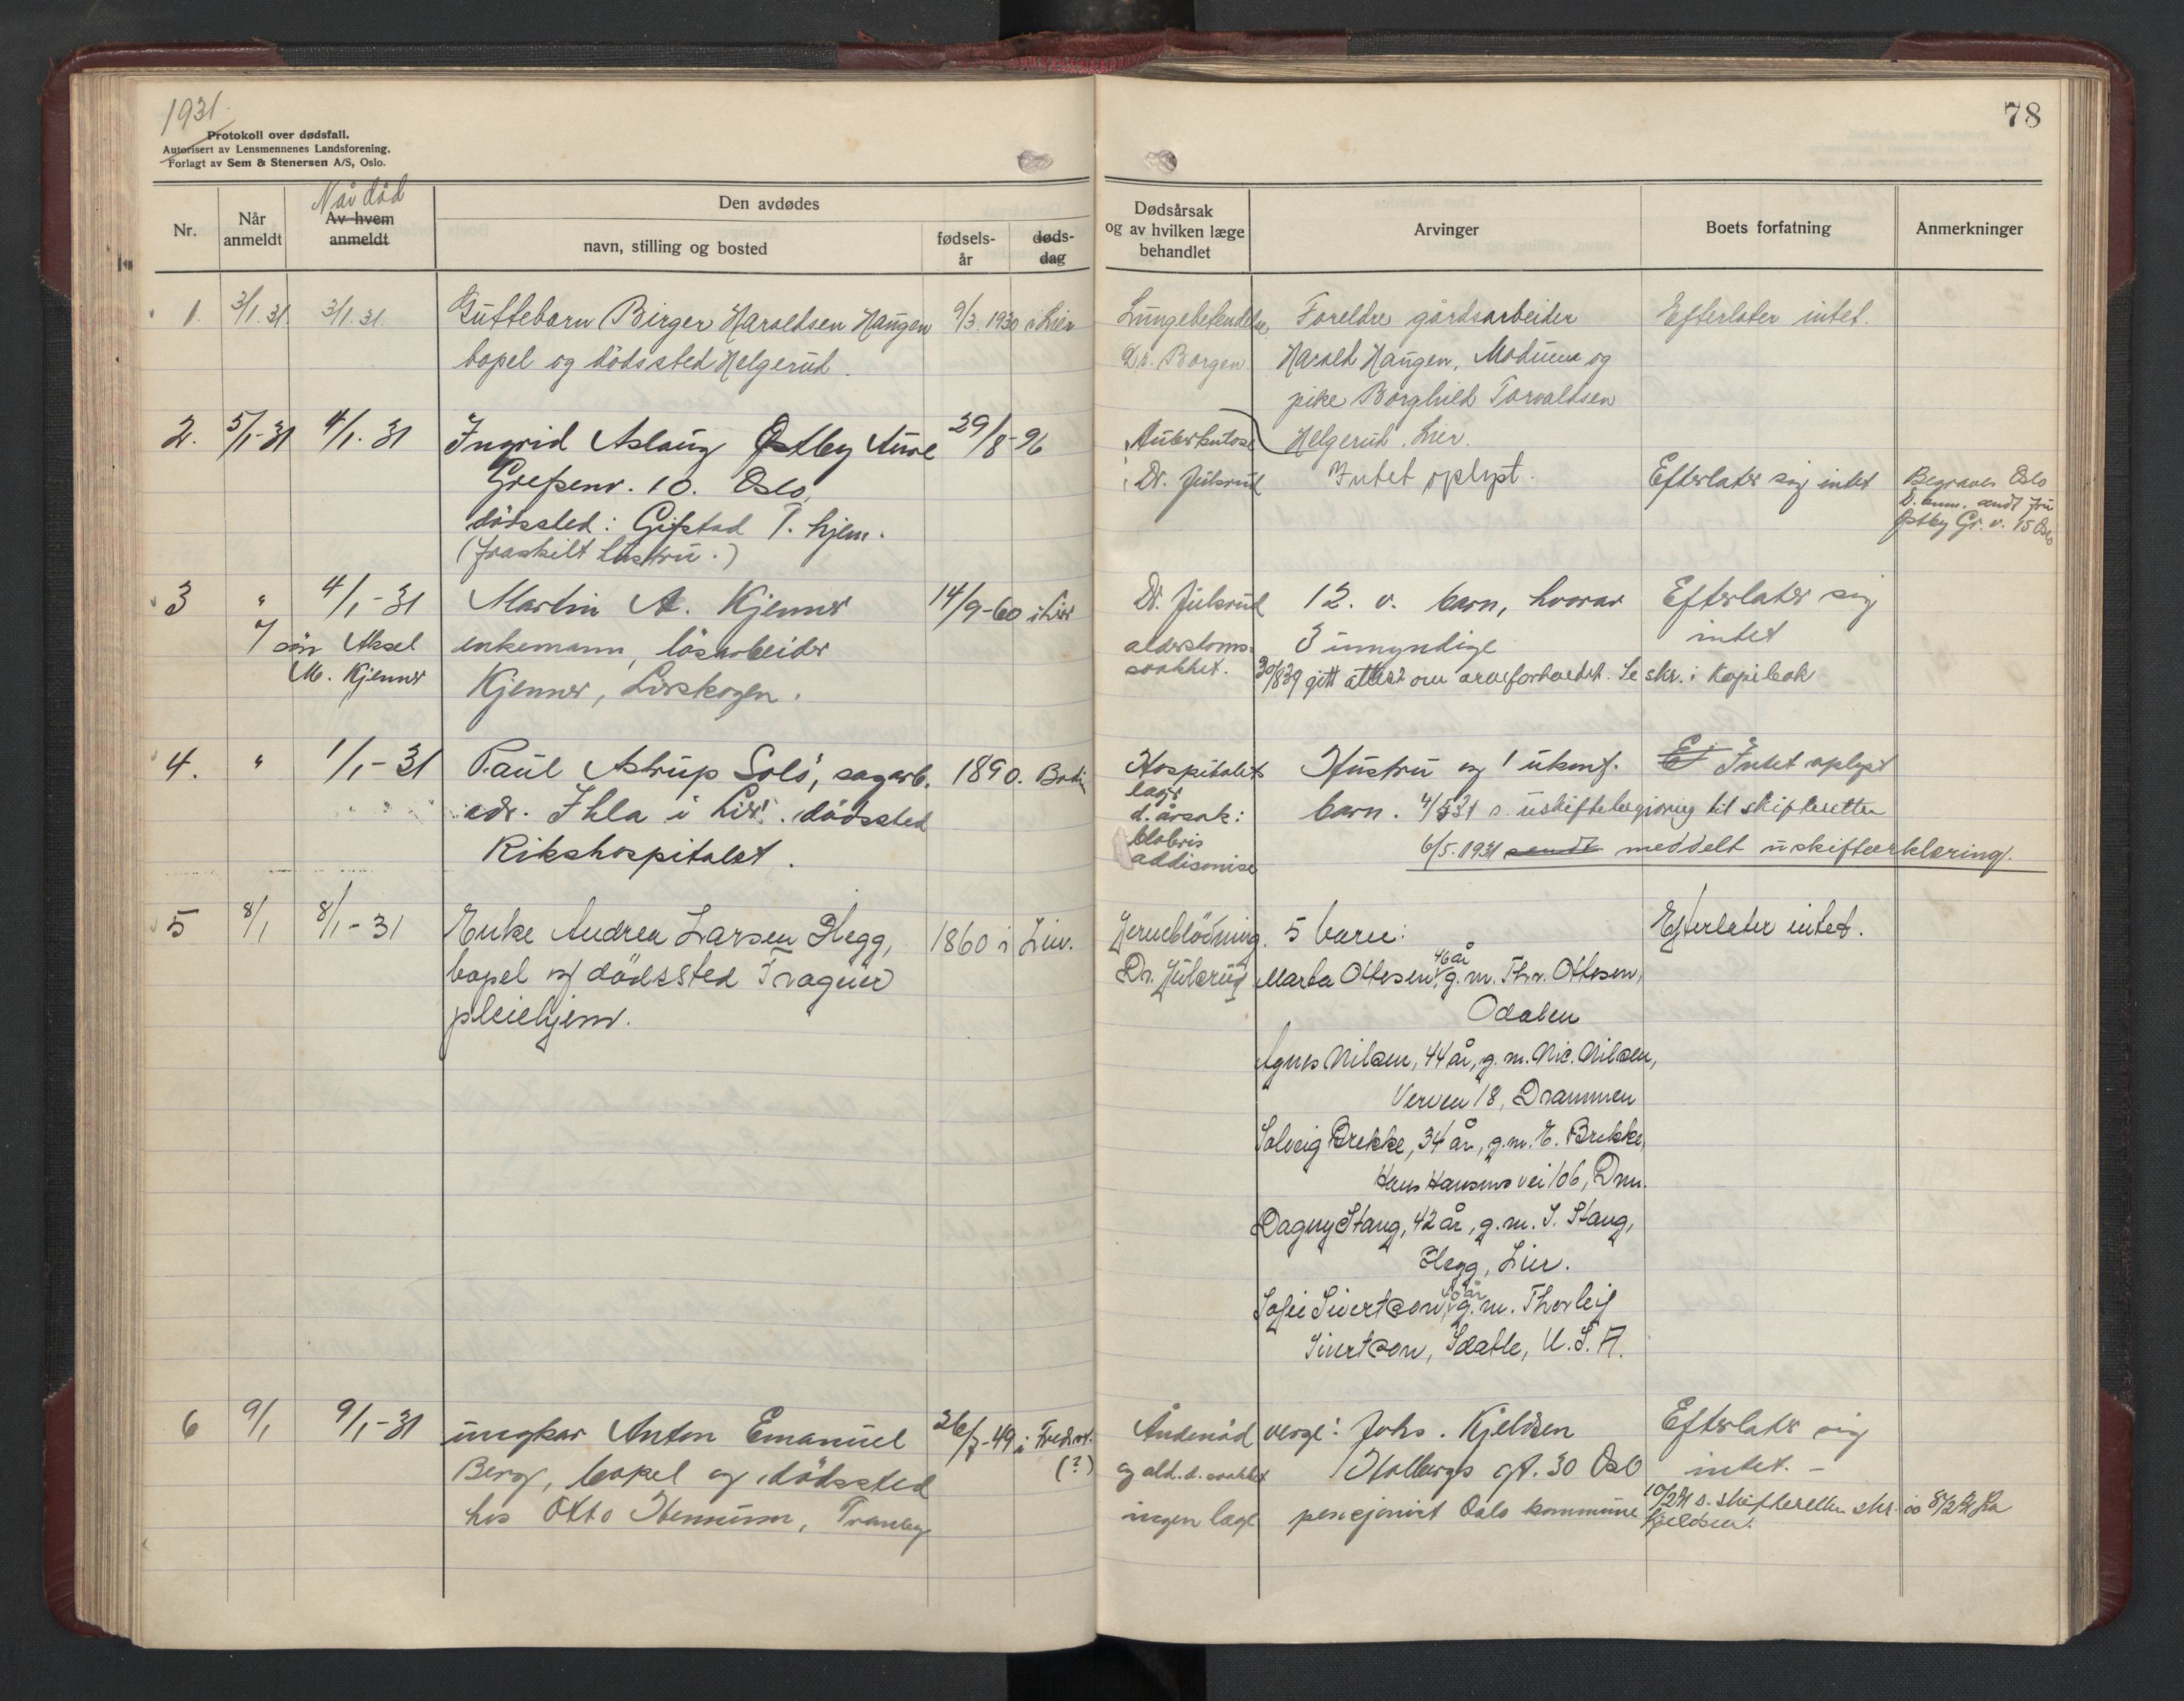 1931.
Protokoll over dødsfall.
Autorisert av Lensmennenes Landsforening.
Forlagt av Sem & Stenersen A/S, Oslo.
78
Nr.
Når anmeldt
Når död
Av hvem anmeldt
Den avdødes
navn, stilling og bosted
fødsels-år
døds-dag
Dødsårsak og av hvilken læge behandlet
Arvinger
Boets forfatning
Anmerkninger
1. 3/1.31. 3/1.31. Guttebarn Birger Haraldsen Haugen 9/3.1930 i Lier
bopel og dödssted Helgerud.
Lungebetendelse
Dr. Borgen
Foreldre gårdsarbeider
Harald Haugen, Modum og
pike Borghild Torvaldsen
Helgerud. Lier.
Efterlater intet.
2. 5/1-31 4/1.31 Ingrid Aslaug Østby Aure 29/8-96
Grefsenv. 10. Oslo,
dödssted: Gifstad T. hjem.
(fraskilt hustru.)
Tuberkulose
Dr. Julsrud
Intet oplyst.
Efterlater sig intet
Begraves Oslo
D. anm. sendt fru
Østby Gr. v. 15 Oslo
3 " 4/1-31 Martin A. Kjenner 14/9-60 i Lier
v/ sön Aksel enkemann, lösarbeider
M. Kjenner Kjenner, Lierskogen.
Dr. Julsrud
alderdoms-
svakhet.
12. v. barn, hvorav
3 umyndige
Efterlater sig
intet
30/8 39 gitt attest om arveforholdet. Se skr. i Kopibok
4. " 1/1-31 Paul Astrup Solö, sagarb. 1890. Bodin
adr. Ihla i Lier. dödssted
Rikshospitalet.
Hospitalets
læge
d. årsak:
addisonise
Hustru og 1 ukonf. Intet oplyst
barn. 4/5 31 s. uskiftebegjæring til skifteretten
6/5.1931 sendt meddelt uskifteerklæring.
5 8/1 8/1-31 Enke Andrea Larsen Hegg, 1860 i Lier.
bopel og dödssted Tranby
pleiehjem.
Hjerneblödning.
Dr. Julsrud
5 barn:
Marta Ottesen, 46 år g.m. Thv. Ottesen,
Odalen
Agnes Nilsen, 44 år, g.m. Nic. Nilsen,
Verven 18, Drammen
Solveig Brekke, 34 år, g.m. E. Brekke,
Hans Hansens vei 106, Drm.
Dagny Stang, 42 år, g.m. S. Stang,
Hegg, Lier.
Sofie Sivertson, 40 år g.m. Thorleif
Sivertson, Seatle, U.S.A.
Efterlater intet.
6 9/1 9/1-31 ungkar Anton Emanuel 26/7-49 i Fredr.st.
(?)
Berg, bopel og dödssted
hos Otto Hennum, Tranby
Åndenöd
og ald.d. svakhet
ingen læge
verge: Johs. Kjeldsen
Holbergs gt. 30 Oslo
pensjonist Oslo kommune
Efterlater sig
intet. –
10/2 31 s. skifteretten skr. av 8/2 31 fra
Kjeldsen.